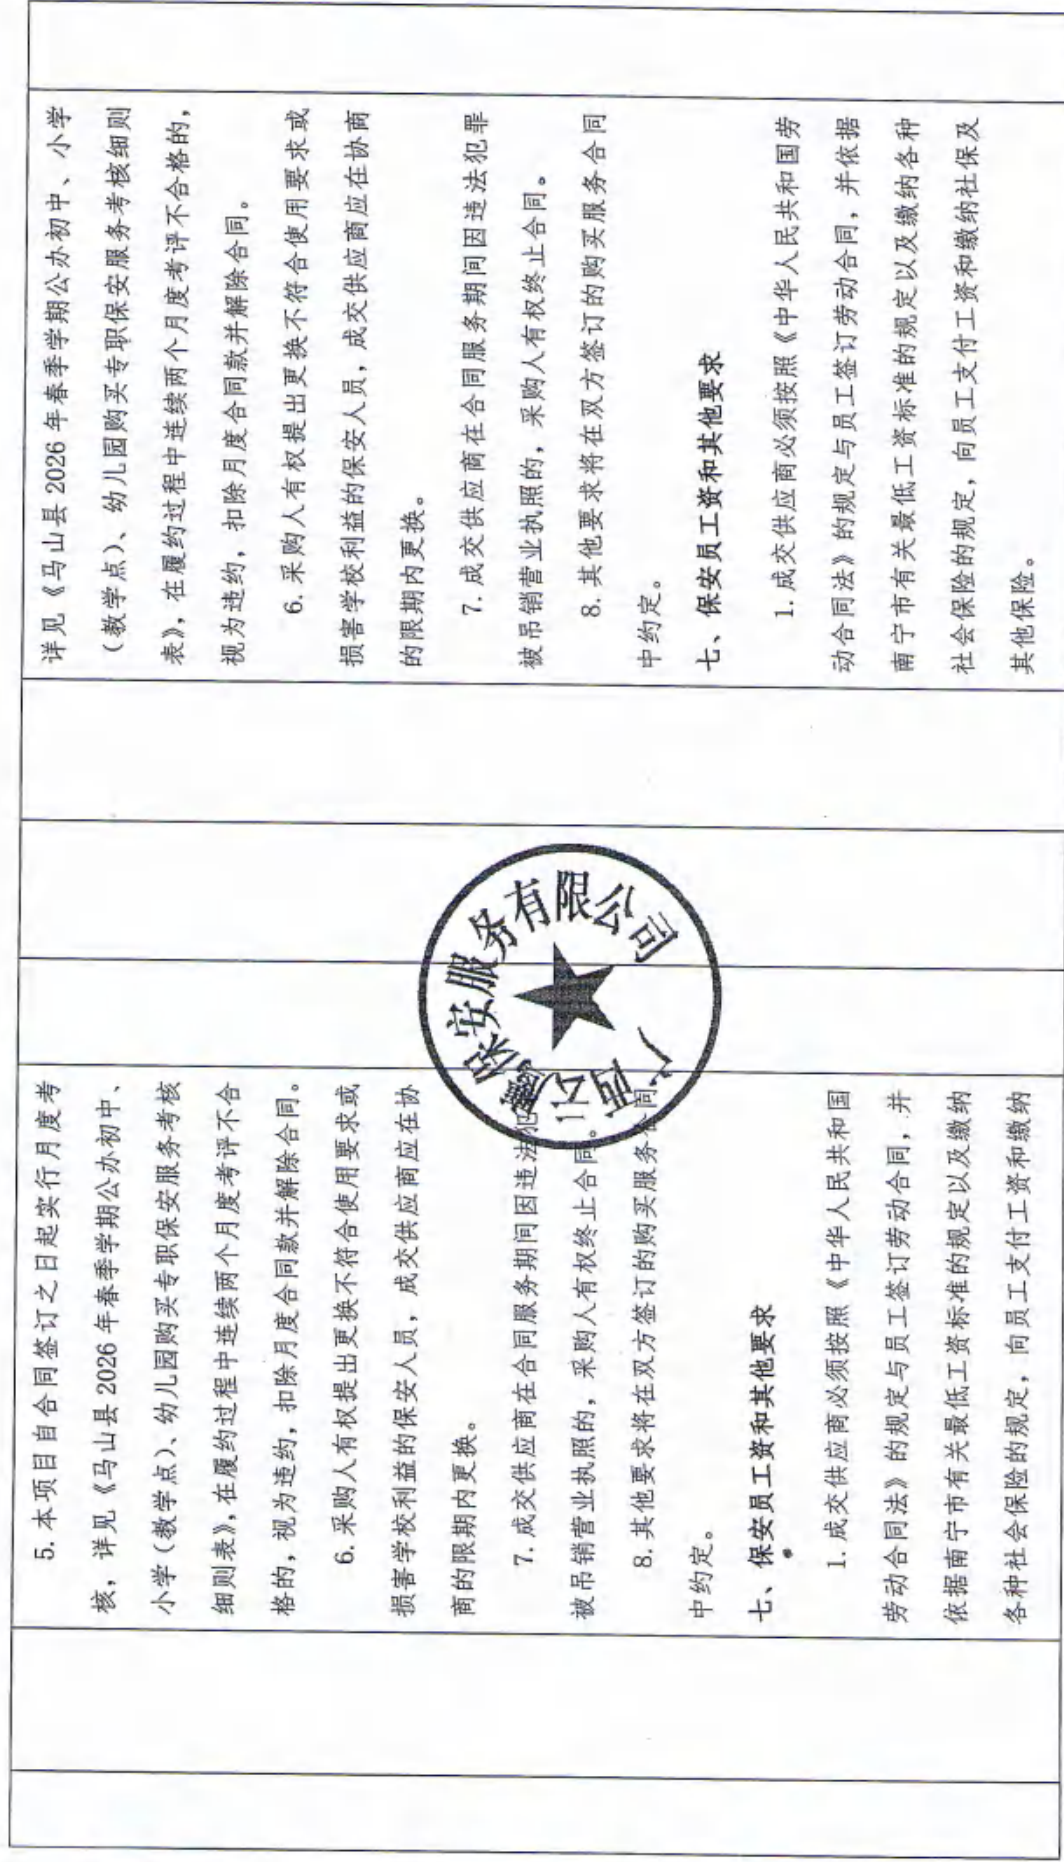 5. 本项目自合同签订之日起实行月度考
核，详见《马山县 2026 年春季学期公办初中、
小学（教学点）、幼儿园购买专职保安服务考核
细则表》，在履约过程中连续两个月度考评不合
格的，视为违约，扣除月度合同款并解除合同。
6. 采购人有权提出更换不符合使用要求或
损害学校利益的保安人员，成交供应商应在协
商的限期内更换。
7. 成交供应商在合同服务期间因违法犯
被吊销营业执照的，采购人有权终止合同。
8. 其他要求将在双方签订的购买服务合同
中约定。
七、保安员工资和其他要求
1. 成交供应商必须按照《中华人民共和国
劳动合同法》的规定与员工签订劳动合同，并
依据南宁市有关最低工资标准的规定以及缴纳
各种社会保险的规定，向员工支付工资和缴纳
广西
保安服务有限公司
详见《马山县 2026 年春季学期公办初中、小学
（教学点）、幼儿园购买专职保安服务考核细则
表》，在履约过程中连续两个月度考评不合格的，
视为违约，扣除月度合同款并解除合同。
6. 采购人有权提出更换不符合使用要求或
损害学校利益的保安人员，成交供应商应在协商
的限期内更换。
7. 成交供应商在合同服务期间因违法犯罪
被吊销营业执照的，采购人有权终止合同。
8. 其他要求将在双方签订的购买服务合同
中约定。
七、保安员工资和其他要求
1. 成交供应商必须按照《中华人民共和国劳
动合同法》的规定与员工签订劳动合同，并依据
南宁市有关最低工资标准的规定以及缴纳各种
社会保险的规定，向员工支付工资和缴纳社保及
其他保险。